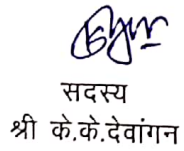 सदस्य
श्री के.के.देवांगन